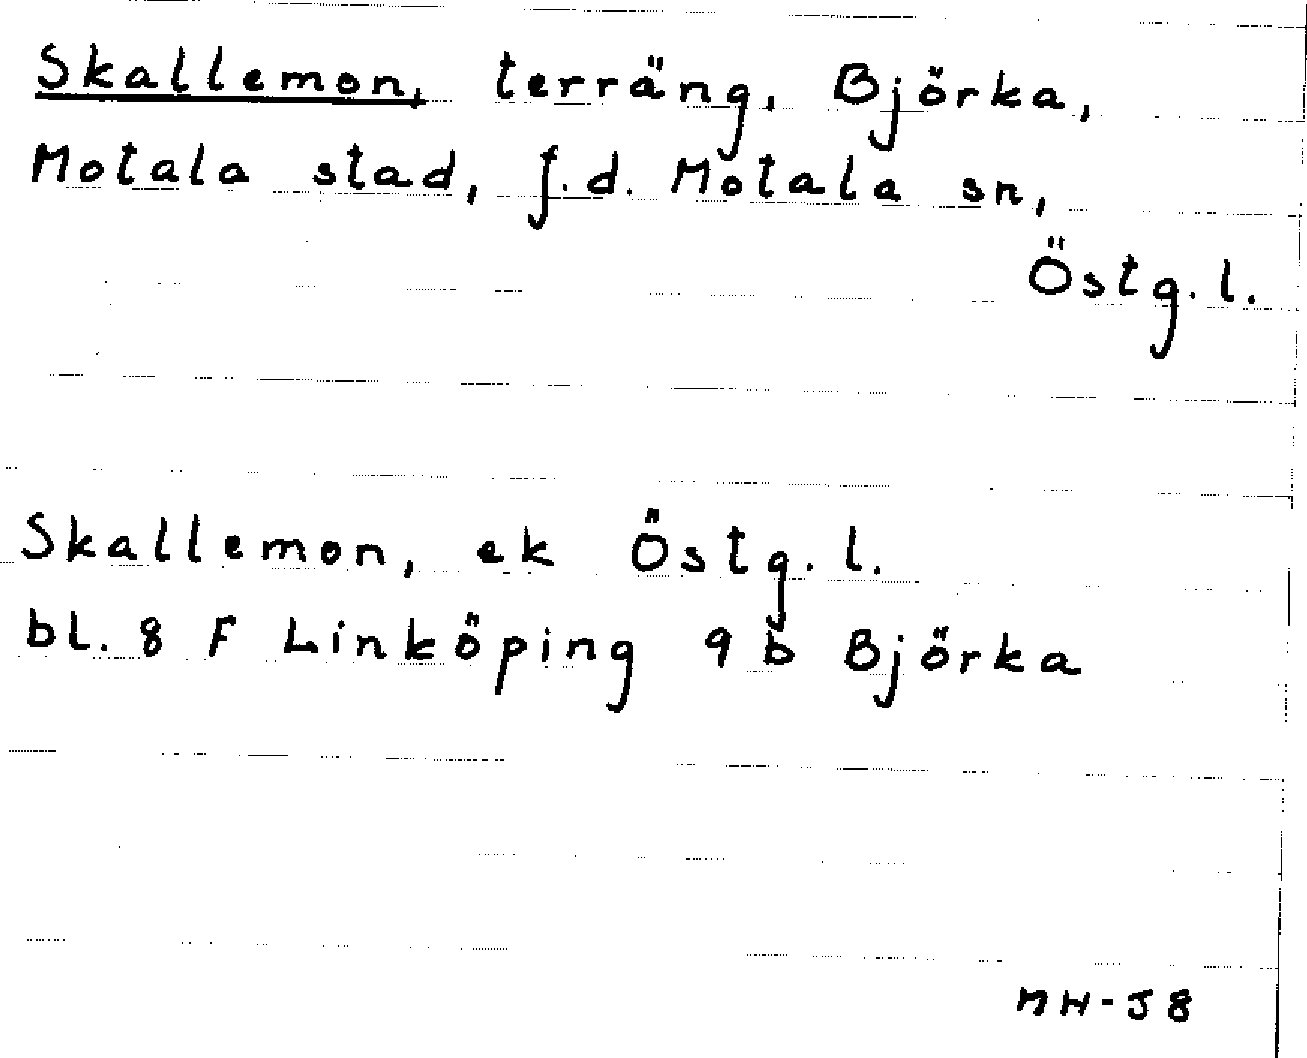 Skallemon, terräng, Björka,
Motala stad, f.d. Motala sn,
Östg.l.
Skallemon, ek Östg.l.
bl. 8 F Linköping 9 b Björka
MH-J8